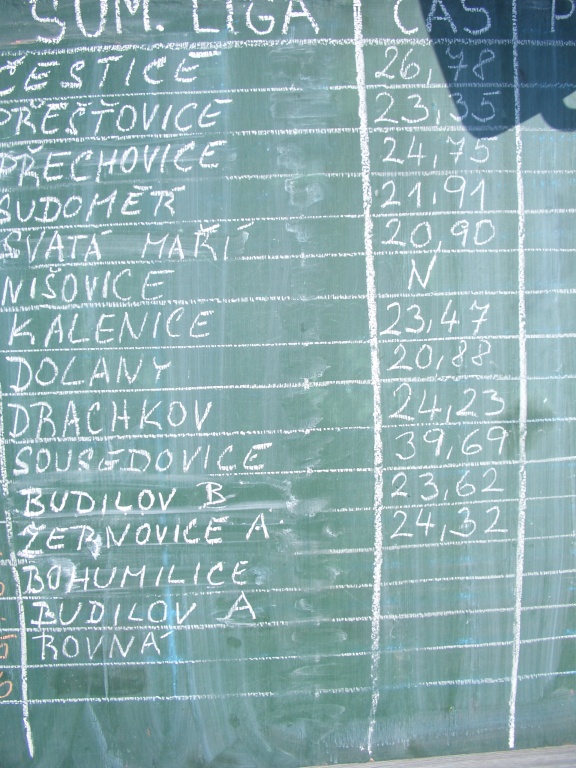 ŠUM. LIGA ČAS P
ČESTICE 26,78
PŘEŠŤOVICE 23,35
PŘECHOVICE 24,75
SUDOMĚŘ 21,91
SVATÁ MAŘÍ 20,90
NIŠOVICE N
KALENICE 23,47
DOLANY 20,88
DRACHKOV 24,23
SOUSEDOVICE 39,69
BUDILOV B 23,62
ŽERNOVICE A 24,32
BOHUMILICE
BUDILOV A
ROVNÁ